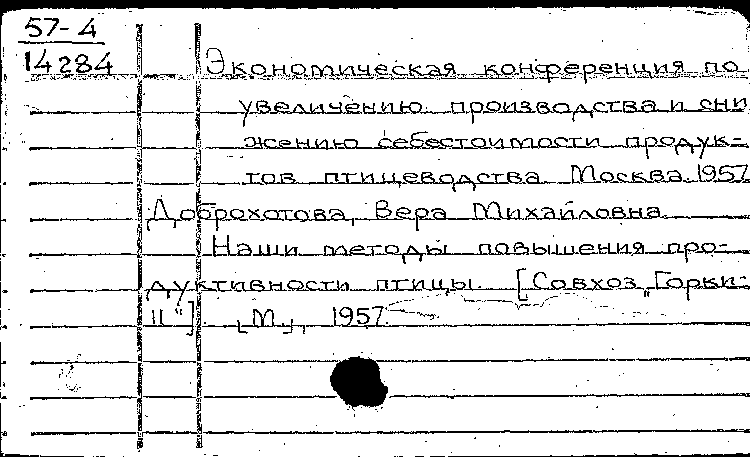 57-4
14284
Экономическая конференция по
увеличению производства и сни
жению себестоимости продук-
тов птицеводства. Москва. 1957
Доброхотова, Вера Михайловна
Наши методы повышения про-
дуктивности птицы. [Совхоз „Горки-
II"]. [М.], 1957.